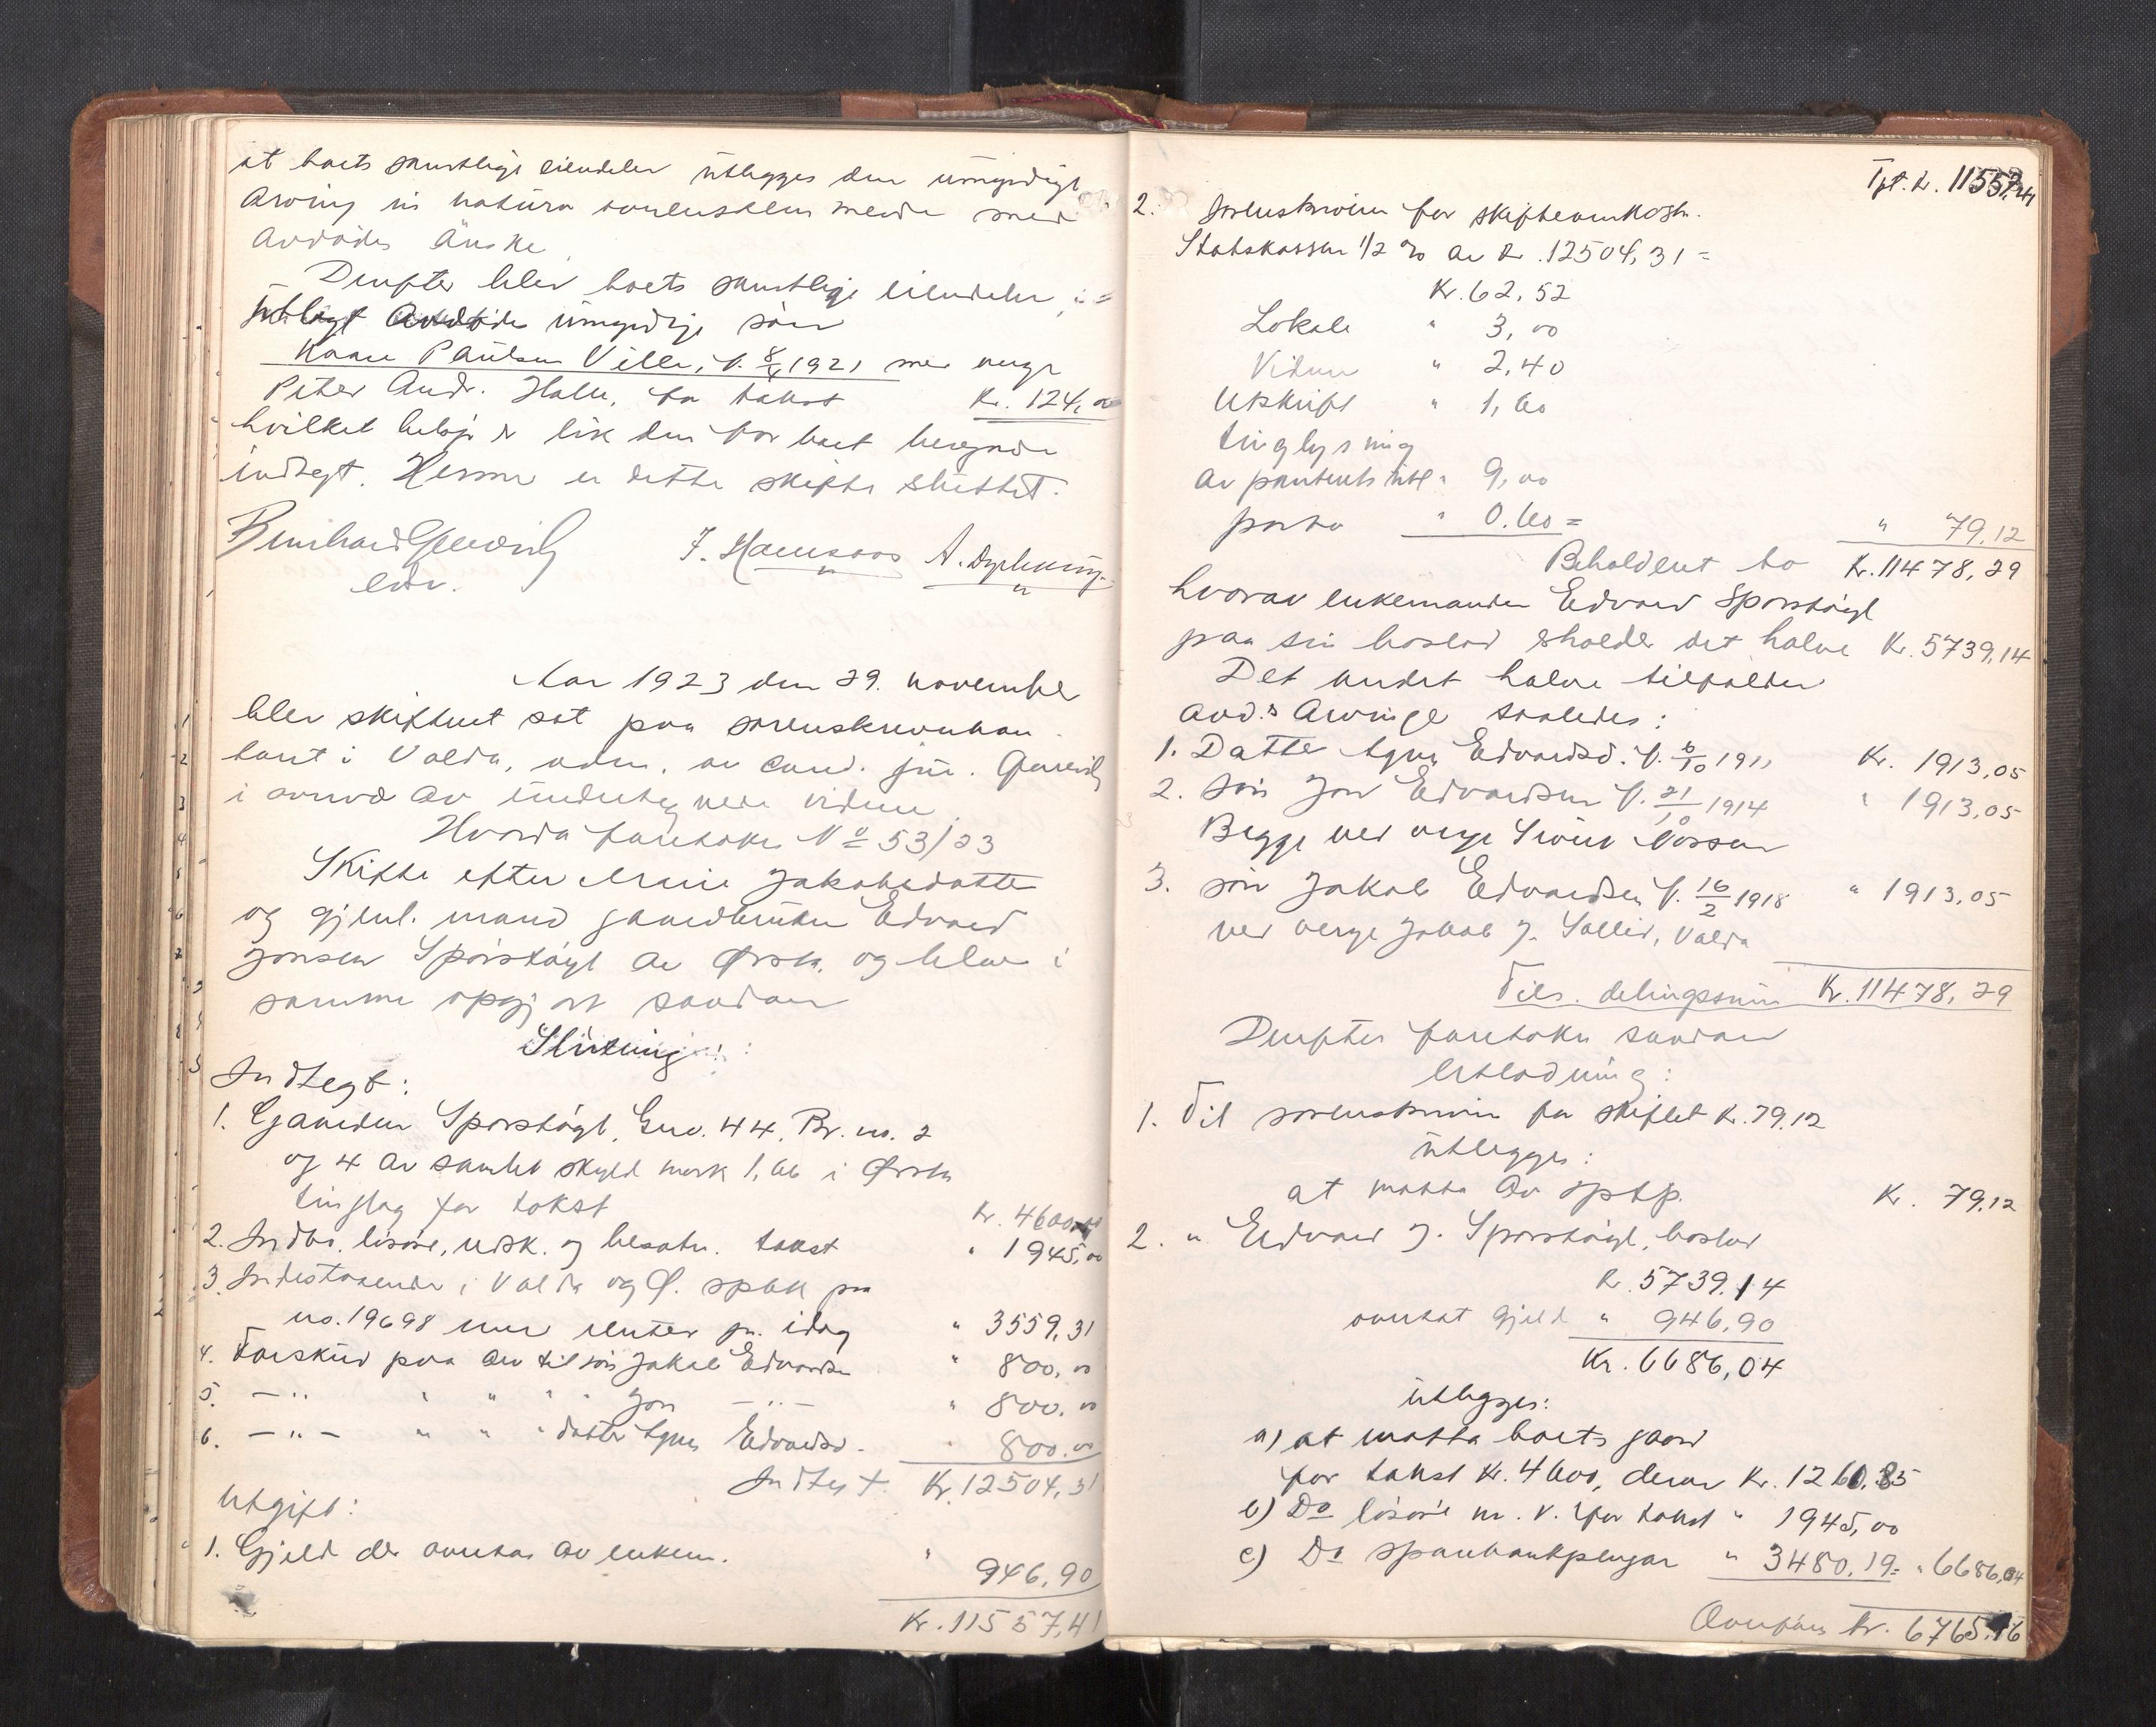 at boets samtlige eiendeler utlegges den umyndige
Arving in natura overensstem mende med
Avdødes Ønske
Derefter blev boets samtlige eiendeler
utlagt Avdødes umyndige søn
Kaare Paulsen Velle, f. 8/4 1921 med verge
Peter Andr. Holm, for takst Kr. 124,00
hvilket beløp er lik den for boet beregnede
indtegt. Herme er dette skifte sluttet.
edv.
J. Hamsaas
Aar 1923 den 29. november
blev skifteret sat paa sorenskriverkon
toret i Volda, adm. av cand. jur.
i overvær av undertegnede vidner
Hvorda foretokes No 53/23
Skifte efter Marie Jakobsdatter
og gjenl. mand gaardbruker Edvard
Jonsen Sporstøyl av Ørsta, og blev i
samme opgjort saadan
Slutning:
Indtegt:
1. Gaarden Sporstøyl, Gno. 44, Br. no. 2
og 4 av samlet skyld mark 1,66 i Ørsta
tinglag for takst Kr. 4600,00
2. Indbo, løsøre, redsk. og besætn. takst " 1945,00
3. Indestaaende i Volda og Ø. spbk paa
no. 19698 med renter pr. idag " 3559,31
4. Forskud paa Arv til søn Jakob Edvardsen " 800,00
5. — " — " " " " Jon — " — " 800,00
6. — " — " " " datter Agnes Edvardsd. " 800,00
Indtegt Kr. 12504,31
Utgift:
1. Gjeld der overtas av enkem. " 946,90
Kr. 11557,41
Tpt. Kr. 11557,41
2. Sorenskriveren for skifteomkostn.
Statskassen 1/2 % av Kr. 12504,31 =
Kr. 62,52
Lokale " 3,00
Vidner " 2,40
Utskrift " 1,60
tinglysning
av panteutstedt " 9,00
porto " 0.60 = " 79,12
Beholdent bo Kr. 11478,29
hvorav enkemanden Edvard Sporstøyl
paa sin boslod erholder det halve Kr. 5739,14
Det andet halve tilfalder
avd.s Arvinge saaledes:
1. Datter Agnes Edvardsd. f. 6/10 1911 Kr. 1913,05
2. Søn Jon Edvardsen f. 21/10 1914 " 1913,05
Begge ved verge Sivert Nossen
3. søn Jakob Edvardsen f. 16/2 1918 " 1913,05
ved verge Jakob J. Sollid, Volda
Tils. delingssum Kr. 11478,29
Derefter foretokes saadan
Utlodning:
1. Til sorenskriveren for skiftet Kr. 79,12
utlegges:
at motta av spbp. Kr. 79,12
2. " Edvard J. Sporstøyl, boslod
Kr. 5739.14
overtat gjeld " 946,90
Kr. 6686,04
utlegges:
a) at motta boets gaard
for takst Kr. 4600, derav Kr. 1260,85
b) Do løsøre m. v. for takst " 1945,00
c) Do sparebankpenger " 3480,19 = " 6686,04
Overføres Kr. 6765,16